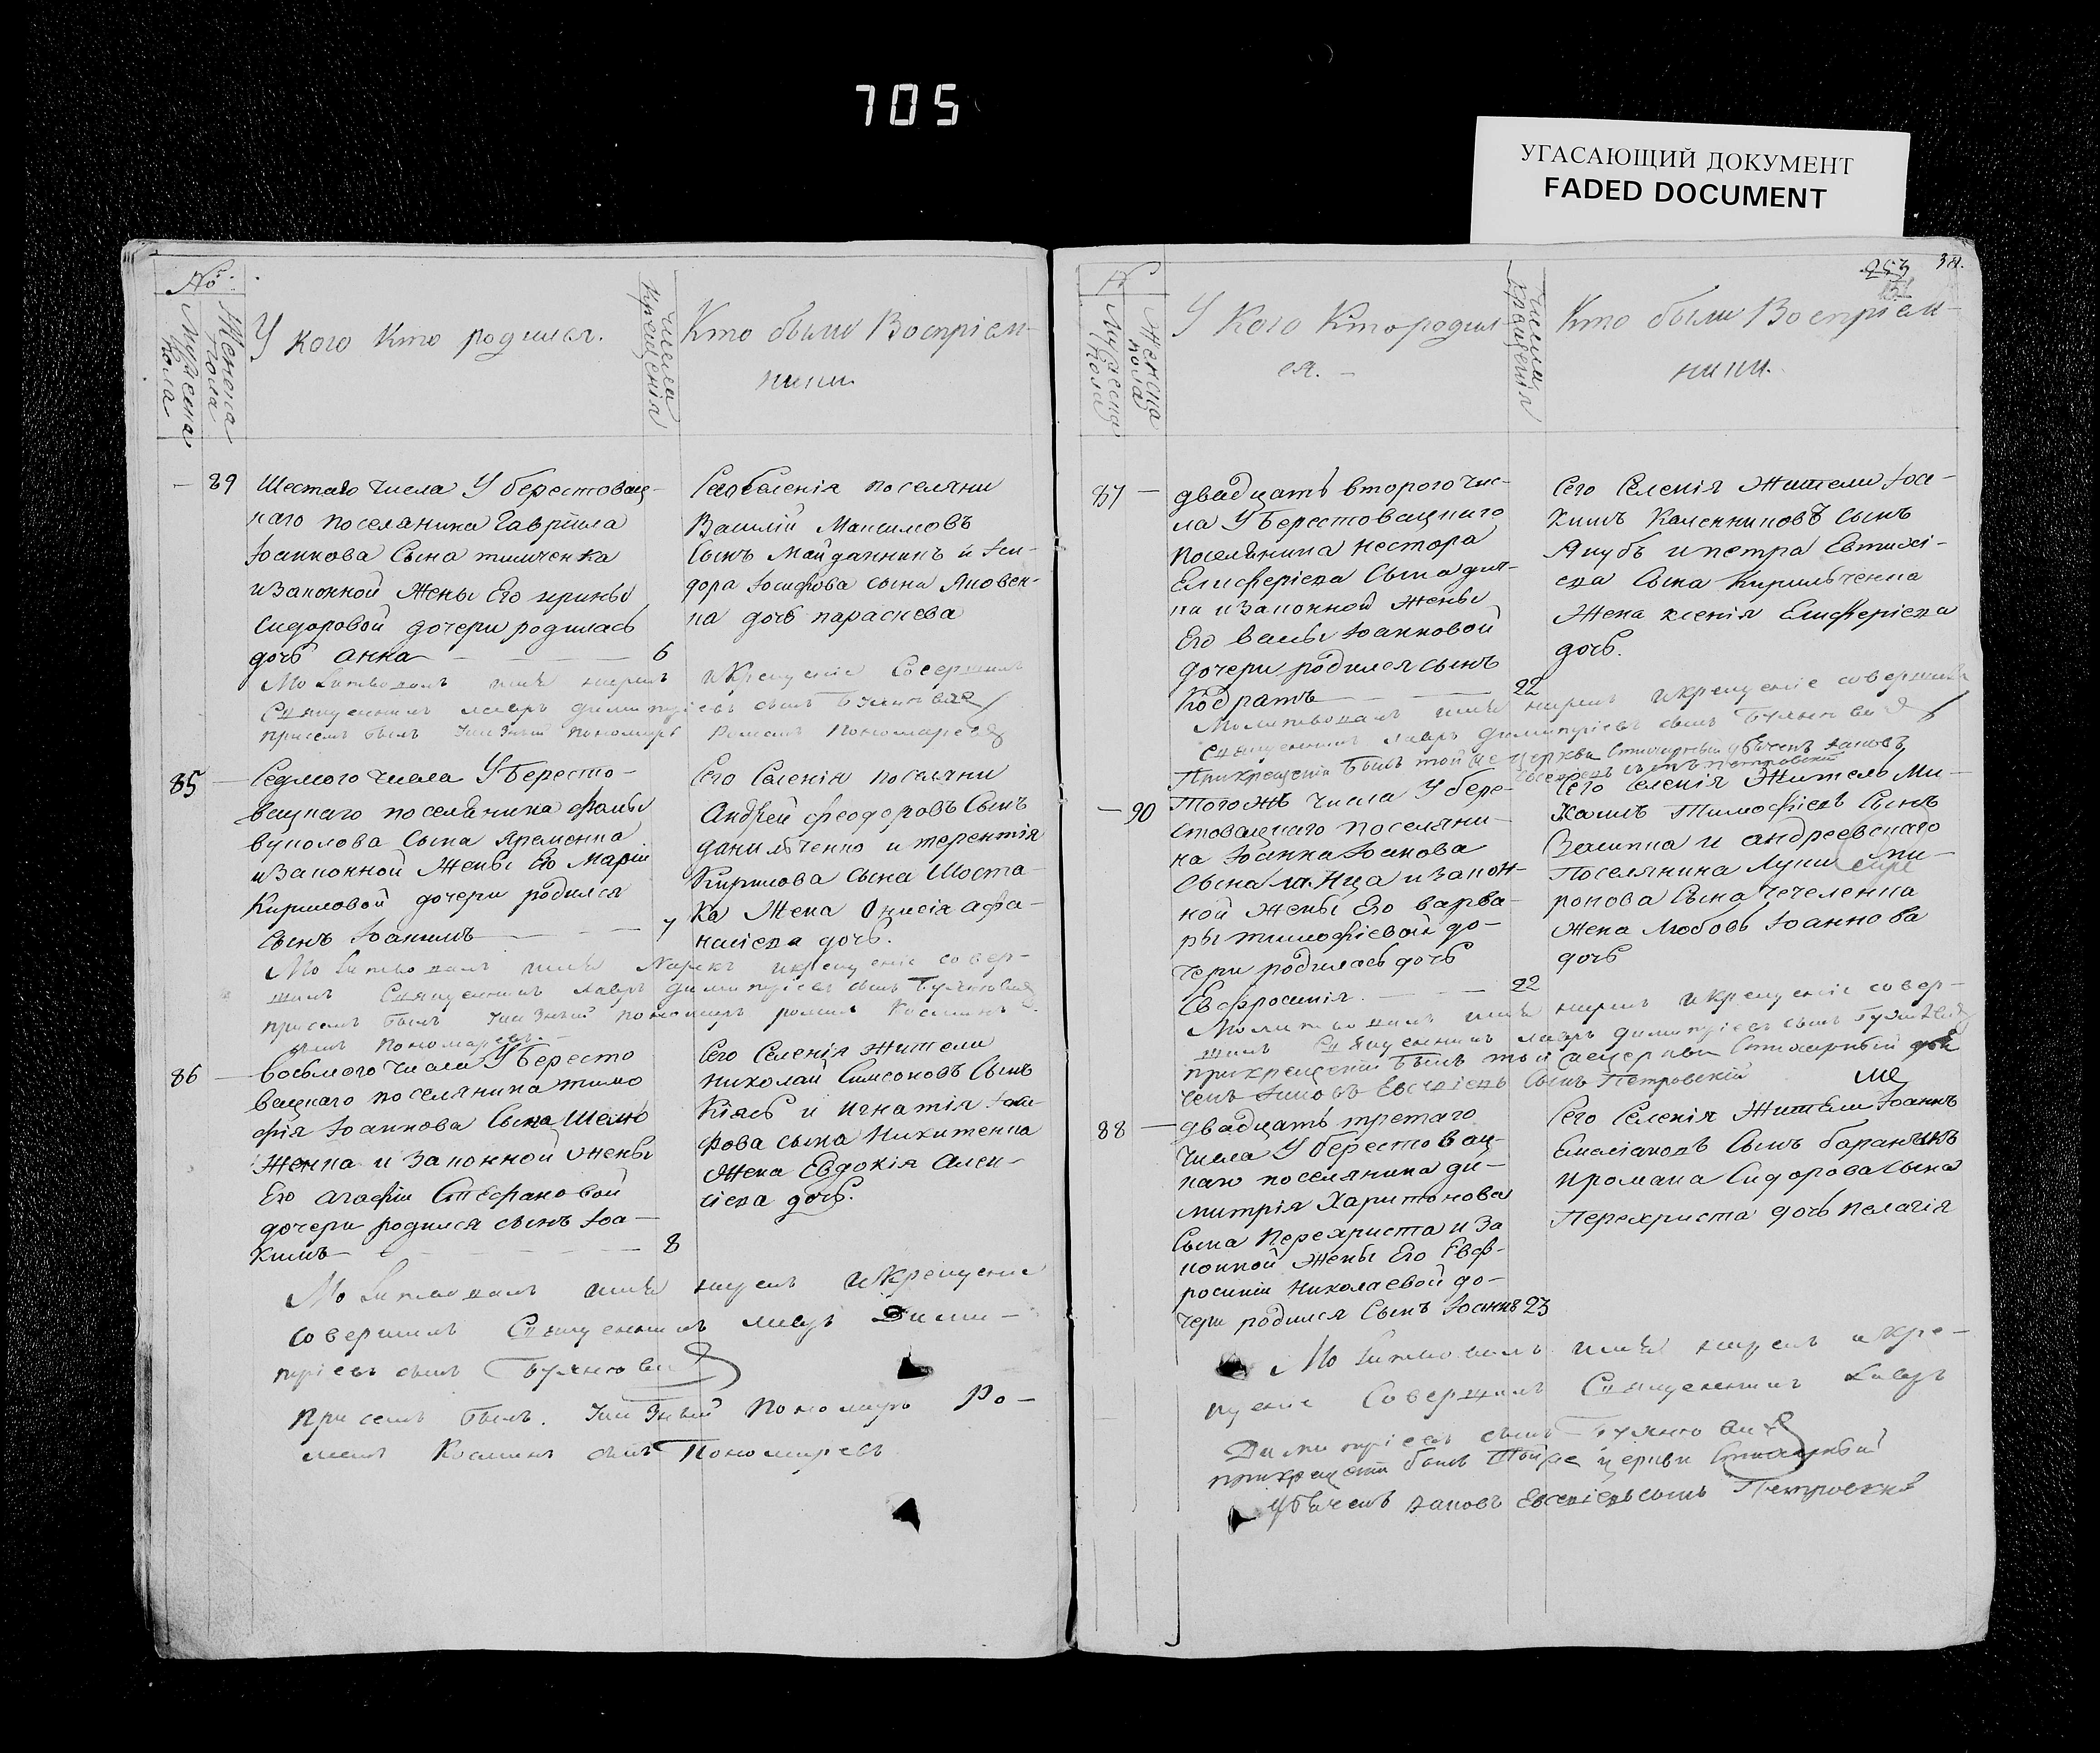 705
УГАСАЮЩИЙ ДОКУМЕНТ
FADED DOCUMENT
№
Мужеска пола
Женска пола
У кого кто родился.
Числа крещенія
Кто были Воспріем-
ники
89
Шестаго числа У берестовец-
каго поселянина Гавріила
Іоаннова Сына тимченка
и Законной Жены Его ирины
Сидоровой дочери родилась
дочь Анна 6
поселяни
Василій Максимовъ
Сынъ Майданникъ и Іси-
дора Іосифова сына Яковен-
ка дочь параскева
Молитводалъ имя нарекъ и Крещеніе Совершилъ
Священникъ лавръ димитріевъ сынъ
присемъ былъ пономарь Романъ Пономаревъ
85
Седмого числа У Бересто-
вецкаго поселянина фомы
вуколова Сына Яременка
и Законной Жены Его Маріи
Кириловой дочери родился
Сынъ Іоакимъ 7
Сего Селенія поселяни
Андрей феодоровъ Сынъ
данильченко и терентія
Кирилова сына Шоста-
ка Жена Онисія Афа-
насіева дочь.
Молитводалъ имя Нарекъ икрещеніе совер-
шилъ Священникъ лавръ димитріевъ сынъ
присемъ былъ пономарь романъ Косминъ
сынъ пономаревъ.
86
восьмого числа У Бересто
вецкаго поселянина тимо
фія Іоаннова Сына Шелю
Женка и Законной Жены
Его агафіи Стефановой
дочери родился сынъ Іоа-
кимъ 8
Сего Селенія жители
Николай Симеоновъ Сынъ
Кіясь и игнатія
фова сына Никитенка
Жена Евдокія Алек-
сіева дочь.
Молитводалъ имя нарекъ и Крещеніе
совершилъ Священникъ лавръ Дими-
тріевъ сынъ
присемъ былъ пономарь Ро-
манъ Косминъ сынъ Пономаревъ
253
38.
№
Мужеска пола
Женска пола
У Кого Кто родил-
ся. -
Числа крещенія
Кто были Воспріем-
ники.
87
двадцать второго чис-
ла У Берестовецкаго
поселянина нестора
Елисферіева Сына дяч-
ка и Законной Жены
Его Іоанновой
дочери родился сынъ
Кодратъ 22
Сего Селенія Жители Іоа-
кимъ Каленниковъ сынъ
Якубъ и петра Евтихі-
ева Сына Кирильченка
Жена ксенія Елисферіева
дочь.
Молитводалъ имя нарекъ икрещеніе совершилъ
священникъ лавръ димитріевъ сынъ
Прикрещеніи былъ той же церкви Стихарный Іаковъ
Евсевіевъ сынъ петровскій
90
Тогожъ числа У бере-
стовецкаго поселяни-
на Іоанна Іоакова
Сына ганжа и закон-
ной Жены Его варва-
ры тимофіевой до-
чери родилась дочь
Евфросинія. 22
Сего Селенія Житель Ми-
хаилъ Тимофіевъ Сынъ
и андреевскаго
Поселянина Луки
ронова Сына чечеленка
Жена Любовь Іоаннова
дочь
Молитводалъ имя нарекъ икрещеніе совер-
шилъ Священникъ лавръ димитріевъ сынъ
прикрещеніи былъ той же церкви Стихарный дья
чекъ Іаковъ Евсевіевъ Сынъ Петровскій
88
двадцать третаго
числа У берестовец-
каго поселянина ди-
митрія Харитонова
Сына Перехриста и за
конной Жены Его Евф-
росиніи Николаевой до-
чери родился Сынъ Іоаннъ 23
Сего Селенія Жители Іоаннъ
Емеліановъ Сынъ баранникъ
и романа Сидорова сына
Перехриста дочь пелагія
Молитводалъ имя нарекъ икре-
щеніе Совершилъ Священникъ Лавръ
Димитріевъ сынъ
прикрещеніи былъ той же церкви Стихарный
Іаковъ Евсевіевъ сынъ Петровскій